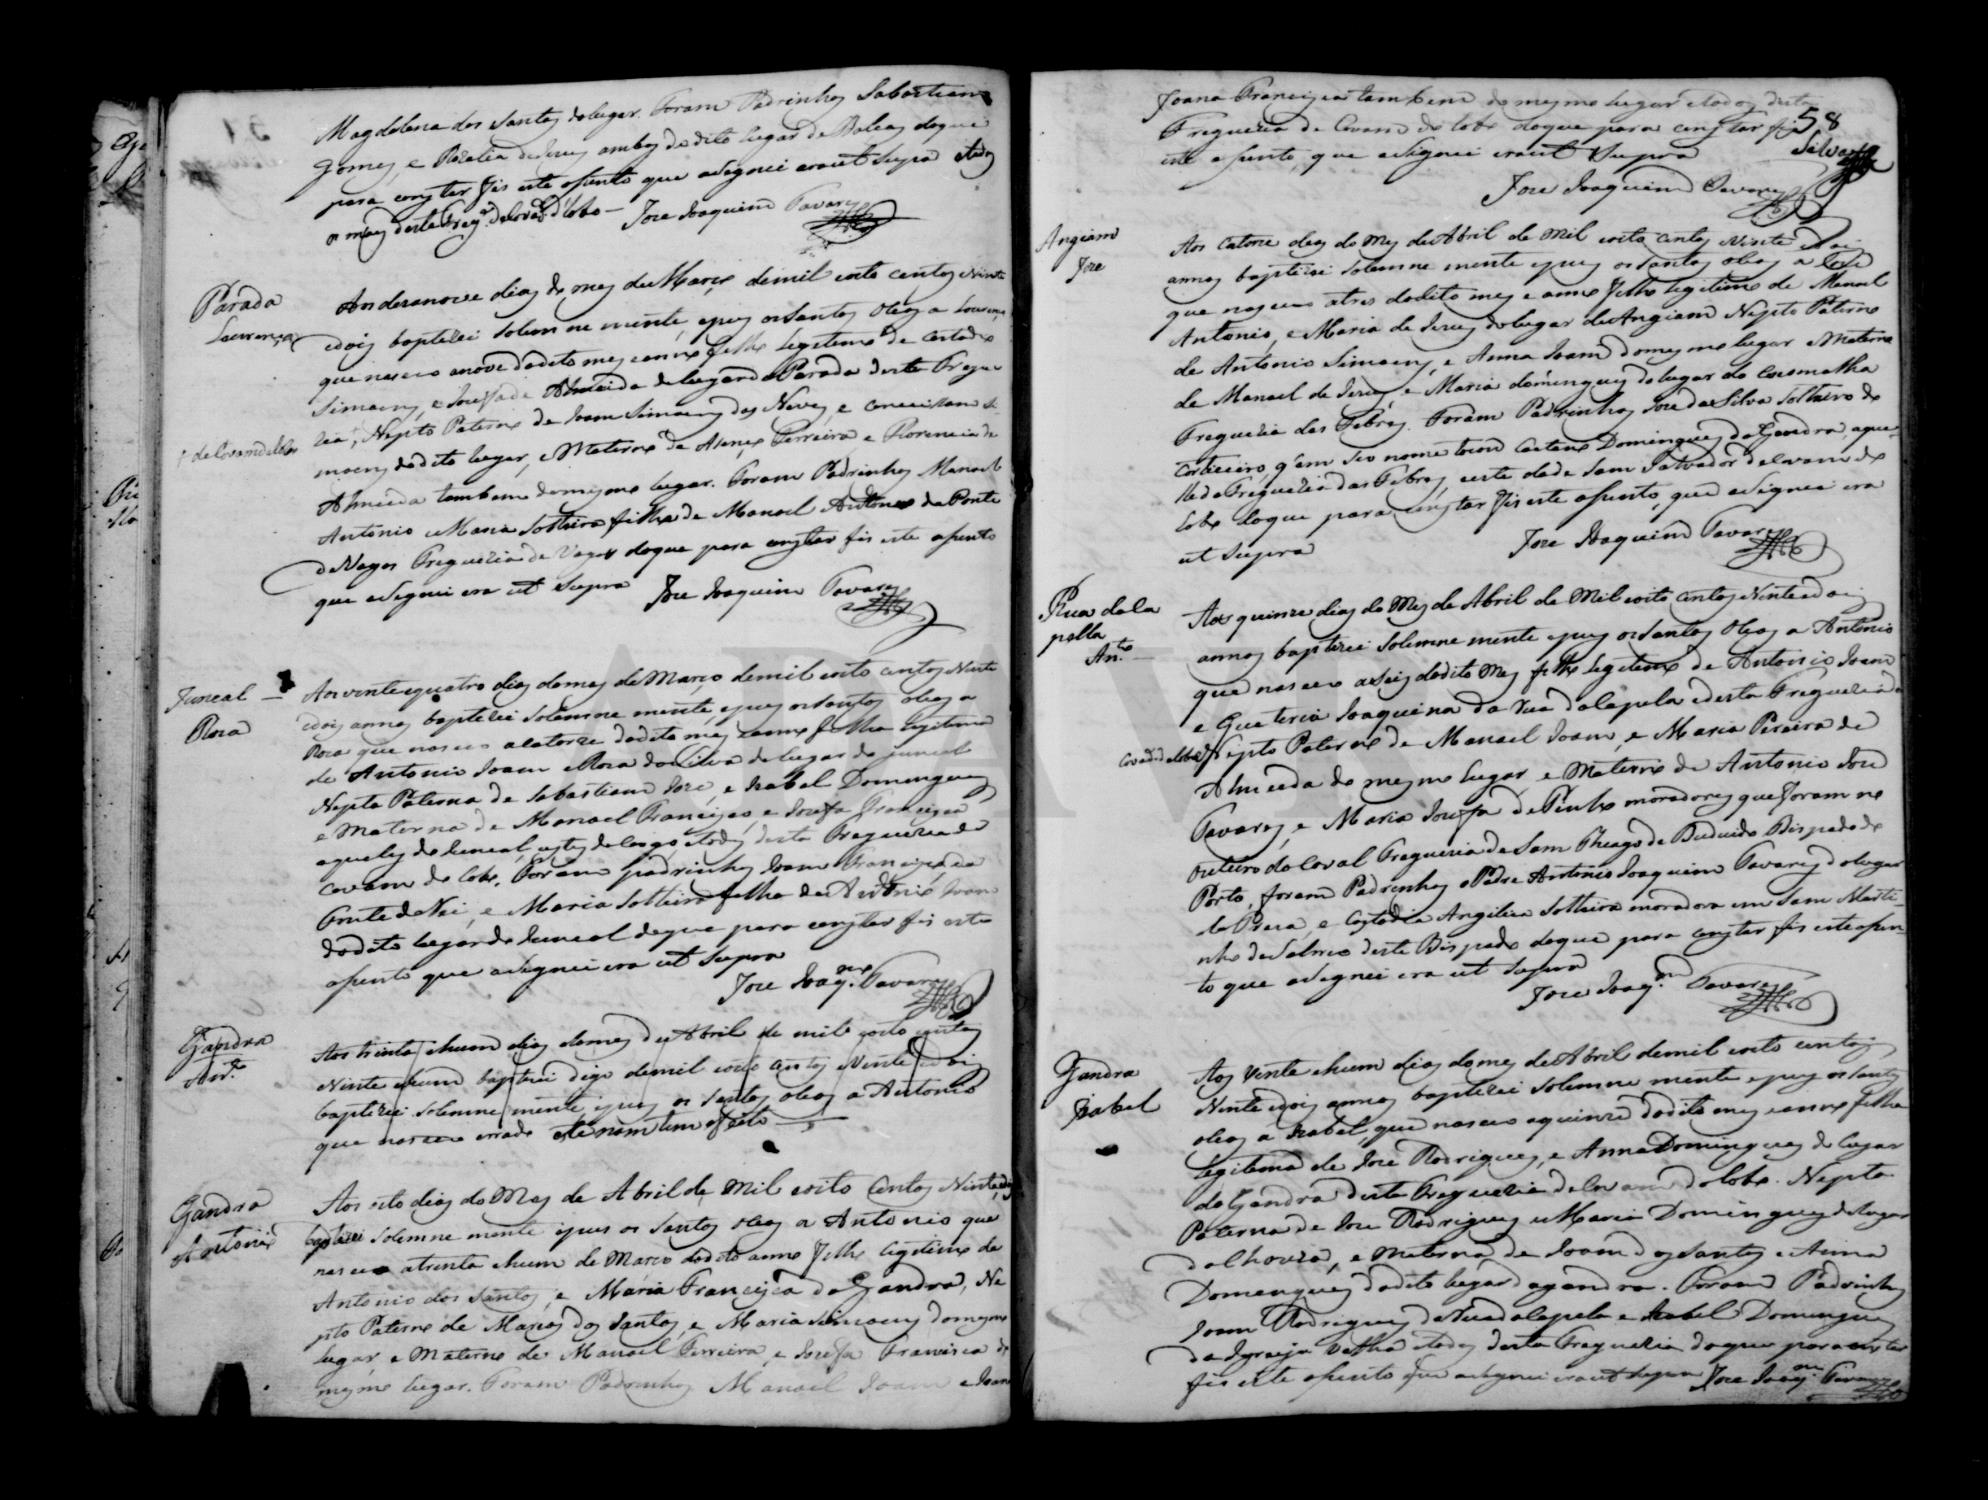 Magdalena dos Santos do lugar. Foram Padrinhos Sabastiam
Gomes, e Rozalia de Jesus ambos do dito lugar de Balcas doque
para constar fis este asento que asignei era ut supra e todos
os mais desta Freg.ª de Covão d'Lobo — Joze Joaquim Tavares
Parada
Lourenço
Aos desanove dias do mes de Março de mil oito centos e vinte
e dois baptizei solemne mente, e pus os santos oleos a Lourenço
que nasceo a nove do dito mes e anno filho legitimo de Custodio
Simoens, e Josefa de Almeida do lugar da Parada desta Fregue
zia, Nepto Paterno de Joam Simoens das Neves, e
moens do dito lugar, e Materno de Ferreira e Florencia de
Almeida tambem do mesmo lugar. Foram Padrinhos Manoel
Antonio e Maria Solteira filha de Manoel Antonio da Ponte
de Vagos Freguezia de Vagos doque para constar fis este asento
que asignei era ut supra Joze Joaquim Tavares
Juncal —
Roza
Aos vente e quatro dias do mes de Março de mil oito centos e vinte
e dois annos baptizei solemne mente, e pus os santos oleos a
Roza que nasceo a catorze do dito mes e anno filha legitima
de Antonio Joam e Roza da Silva do lugar do Juncal
Nepta Paterna de Sabastiam Joze, e Izabel Domingues
e Materna de Manoel Francisco, e Josefa Francisca
aqueles do Juncal, estes do e todos desta Freguezia de
Covam do Lobo. Foram padrinhos Joam Francisco da
Fonte de e Maria Solteira filha de Antonio Joam
do dito lugar do Juncal doque para constar fis este
asento que asignei era ut supra
Joze Joaq.m Tavares
Gandra
Ant.º
Aos trinta e hum dias do mes de Abril de mil oito centos
vinte e hum baptizei digo de mil oito centos e vinte e dois
baptizei solemne mente, e pus os santos oleos a Antonio
que nasceo errado este nam tem efeito
Gandra
Antonio
Aos oito dias do Mes de Abril de Mil oito centos e vinte e dois
baptizei solemne mente e pus os santos oleos a Antonio que
nasceo a trenta e hum de Março do dito anno filho legitimo de
Antonio dos Santos, e Maria Francisca da Gandra, Ne
pto Paterno de Marcos dos Santos, e Maria Simoens do mesmo
lugar e Materno de Manoel Ferreira, e Josefa Francisca do
mesmo lugar. Foram Padrinhos Manoel Joam e Joana
Joana Francisca tambem do mesmo lugar e todos desta
Freguezia de Covam do Lobo doque para constar fis
este asento, que asignei era ut supra
58
Silva
Joze Joaquim Tavares
Angiam
Joze
Aos catorze dias do mes de Abril de mil oito centos e vinte e dois
annos baptizei solemne mente e pus os santos oleos a Joze
que nasceo a tres do dito mes e anno filho legitimo de Manoel
Antonio, e Maria de Jesus do lugar de Angiam Nepto Paterno
de Antonio Simoens, e Anna Joam do mesmo lugar e Materno
de Manoel de Jesus, e Maria domingues do lugar do
Freguezia das Febres. Foram Padrinhos Joze da Silva Solteiro do
q' em seo nome tocou Caetano Domingues da Gandra, aque-
lle da Freguezia das Febres, e este da de Sam Salvador de Covam do
Lobo doque para constar fis este asento, que asignei era
ut supra
Joze Joaquim Tavares
Rua da la
pella
An.to —
Aos quinze dias do Mes de Abril de Mil oito centos e vinte e dois
annos baptizei solemne mente e pus os santos oleos a Antonio
que nasceo a seis do dito Mes filho legitimo de Antonio Joam
e Quiteria Joaquina da rua da lapela desta Freguezia de
Covão do Lobo Nepto Paterno de Manoel Joam, e Maria Pereira de
Almeida do mesmo lugar, e Materno de Antonio Joze
Tavares, e Maria Josefa de Pinho moradores que foram no
outeiro do Coval Freguezia de Sam Thiago de Beduido Bispado do
Porto, foram Padrinhos o Padre Antonio Joaquim Tavares do lugar
da e Custodia Angelica Solteira moradora em Sam Marti-
nho de Salreo deste Bispado doque para constar fis este asen-
to que asignei era ut supra
Joze Joaq.m Tavares
Gandra
Izabel
Aos vente e hum dias do mes de Abril de mil oito centos
vinte e dois annos baptizei solemne mente e pus os santos
oleos a Izabel, que nasceo a quinze do dito mes e anno filha
legitima de Joze Rodrigues, e Anna Domingues do lugar
da Gandra desta Freguezia de Covam do Lobo. Nepta
Paterna de Joze Rodrigues e Maria Domingues do lugar
e Materna de Joam dos Santos e Anna
Domingues do dito lugar da gandra. Foram Padrinhos
Joam Rodrigues da Rua da lapela e Izabel Domingues
da Igreija Velha e todos desta Freguezia doque para constar
fis este asento que asignei era ut supra Joze Joaq.m Tavares